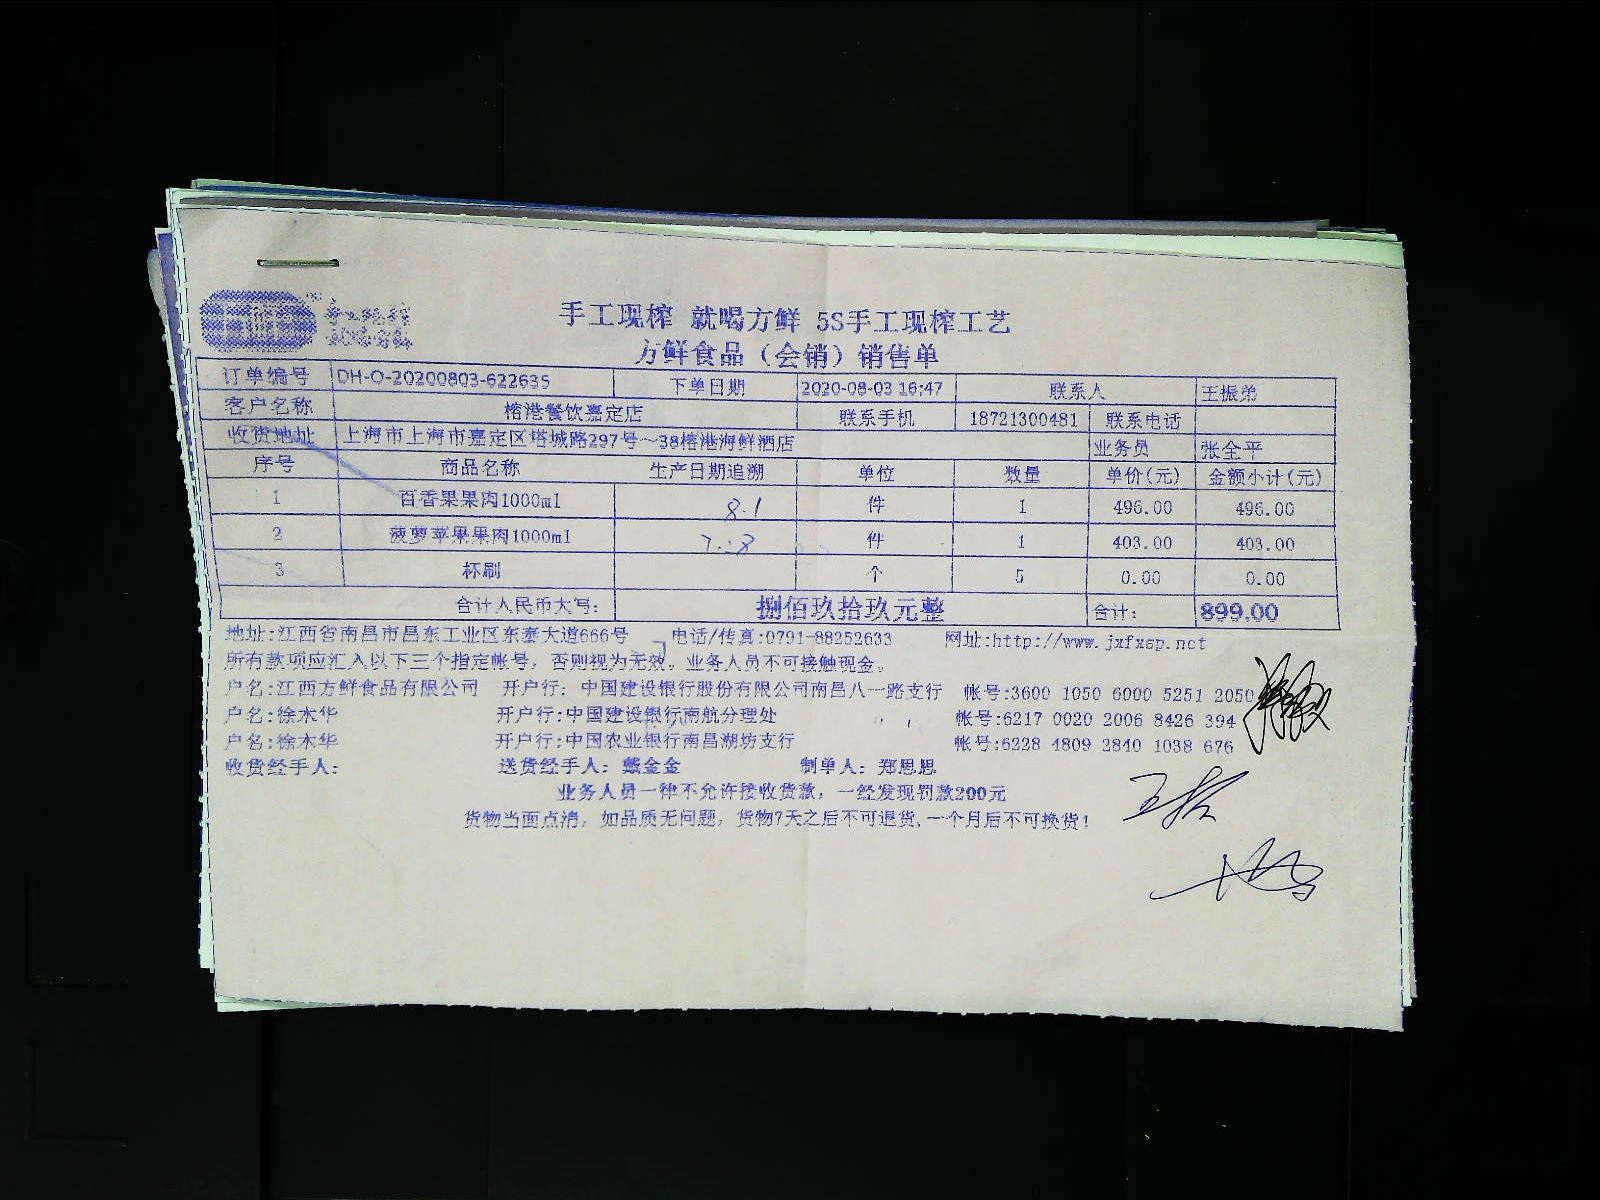 手工现榨 就喝方鲜 5S手工现榨工艺
方鲜食品（会销）销售单
订单编号 DH-O-20200803-622635 下单日期 2020-08-03 16:47 联系人 王振弟
客户名称 榕港餐饮嘉定店 联系手机 18721300481 联系电话
收货地址 上海市上海市嘉定区塔城路297号～38榕港海鲜酒店 业务员 张全平
序号 商品名称 生产日期追溯 单位 数量 单价(元) 金额小计(元)
1 百香果果肉1000ml 8.1 件 1 496.00 496.00
2 菠萝苹果果肉1000ml 7.28 件 1 403.00 403.00
3 杯刷 个 5 0.00 0.00
合计人民币大写： 捌佰玖拾玖元整 合计： 899.00
地址:江西省南昌市昌东工业区东泰大道666号 电话/传真:0791-88252633 网址:http://www.jxfxsp.net
所有款项应汇入以下三个指定帐号，否则视为无效。业务人员不可接触现金。
户名:江西方鲜食品有限公司 开户行: 中国建设银行股份有限公司南昌八一路支行 帐号:3600 1050 6000 5251 2050
户名:徐木华 开户行:中国建设银行南航分理处 帐号:6217 0020 2006 8426 394
户名:徐木华 开户行:中国农业银行南昌湖坊支行 帐号:6228 4809 2840 1038 676
收货经手人: 送货经手人: 戴金金 制单人: 郑思思
业务人员一律不允许接收货款，一经发现罚款200元
货物当面点清，如品质无问题，货物7天之后不可退货,一个月后不可换货!